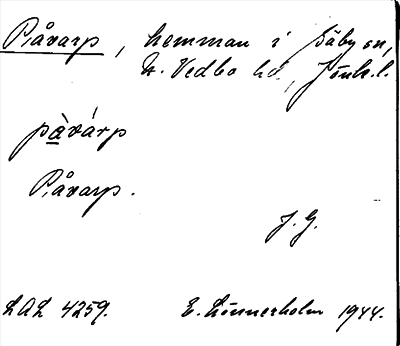 Påvarp, hemman i Säby sn,
N. Vedbo hd, Jönk. l.
pàvàrp
Påvarp.
J. G.
LAL 4259. E. Lönnerholm 1944.